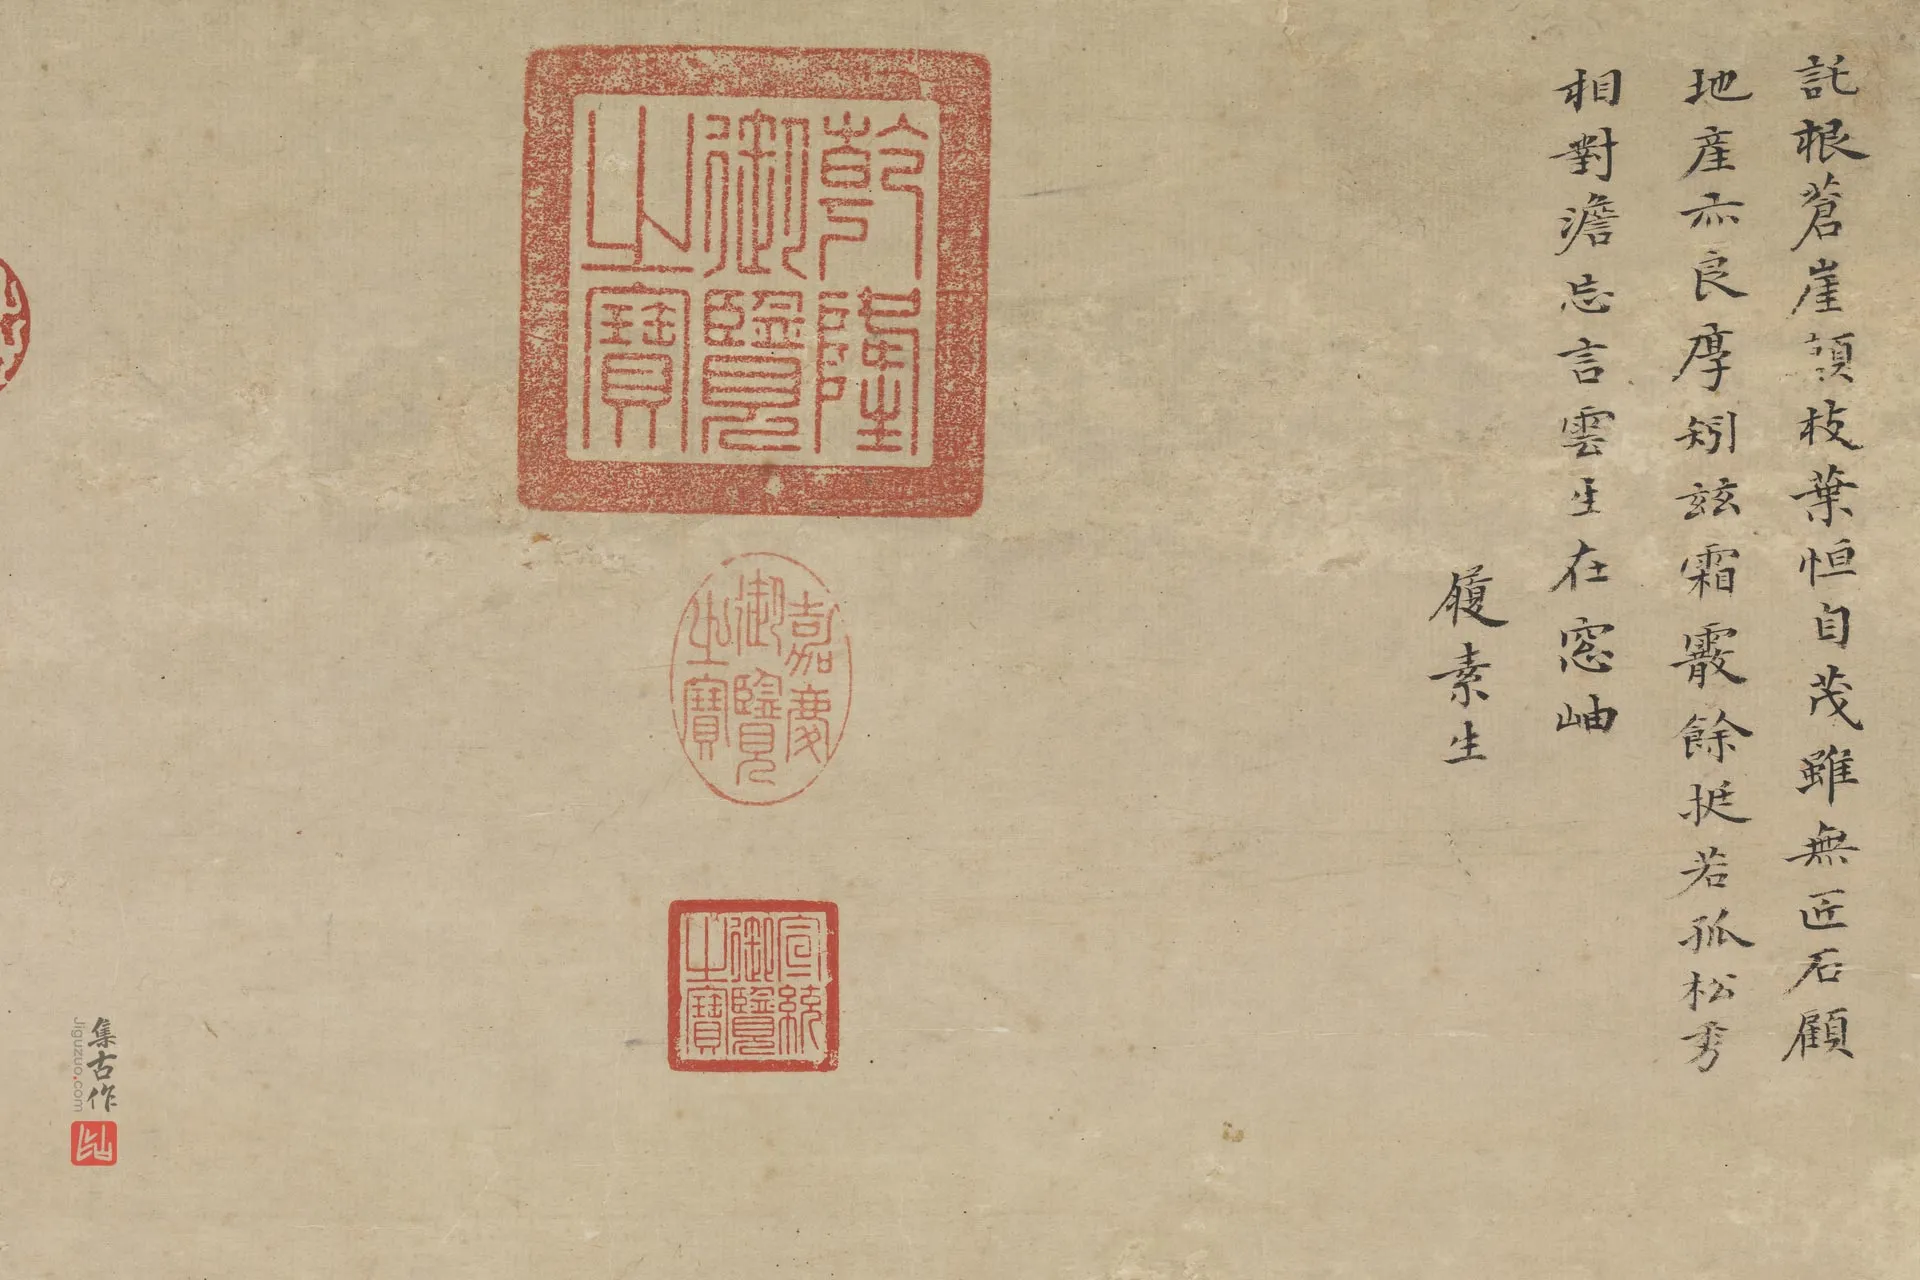 託根蒼崖頭枝葉恒自茂雖無匠石顧
地產亦良厚矧玆霜霰餘挺若孤松秀
相對澹忘言雲生在窓岫
履素生
乾隆
御覽
之寶
嘉慶
御覽
之寶
宣統
御覽
之寶
集古作
Jiguzuo.com